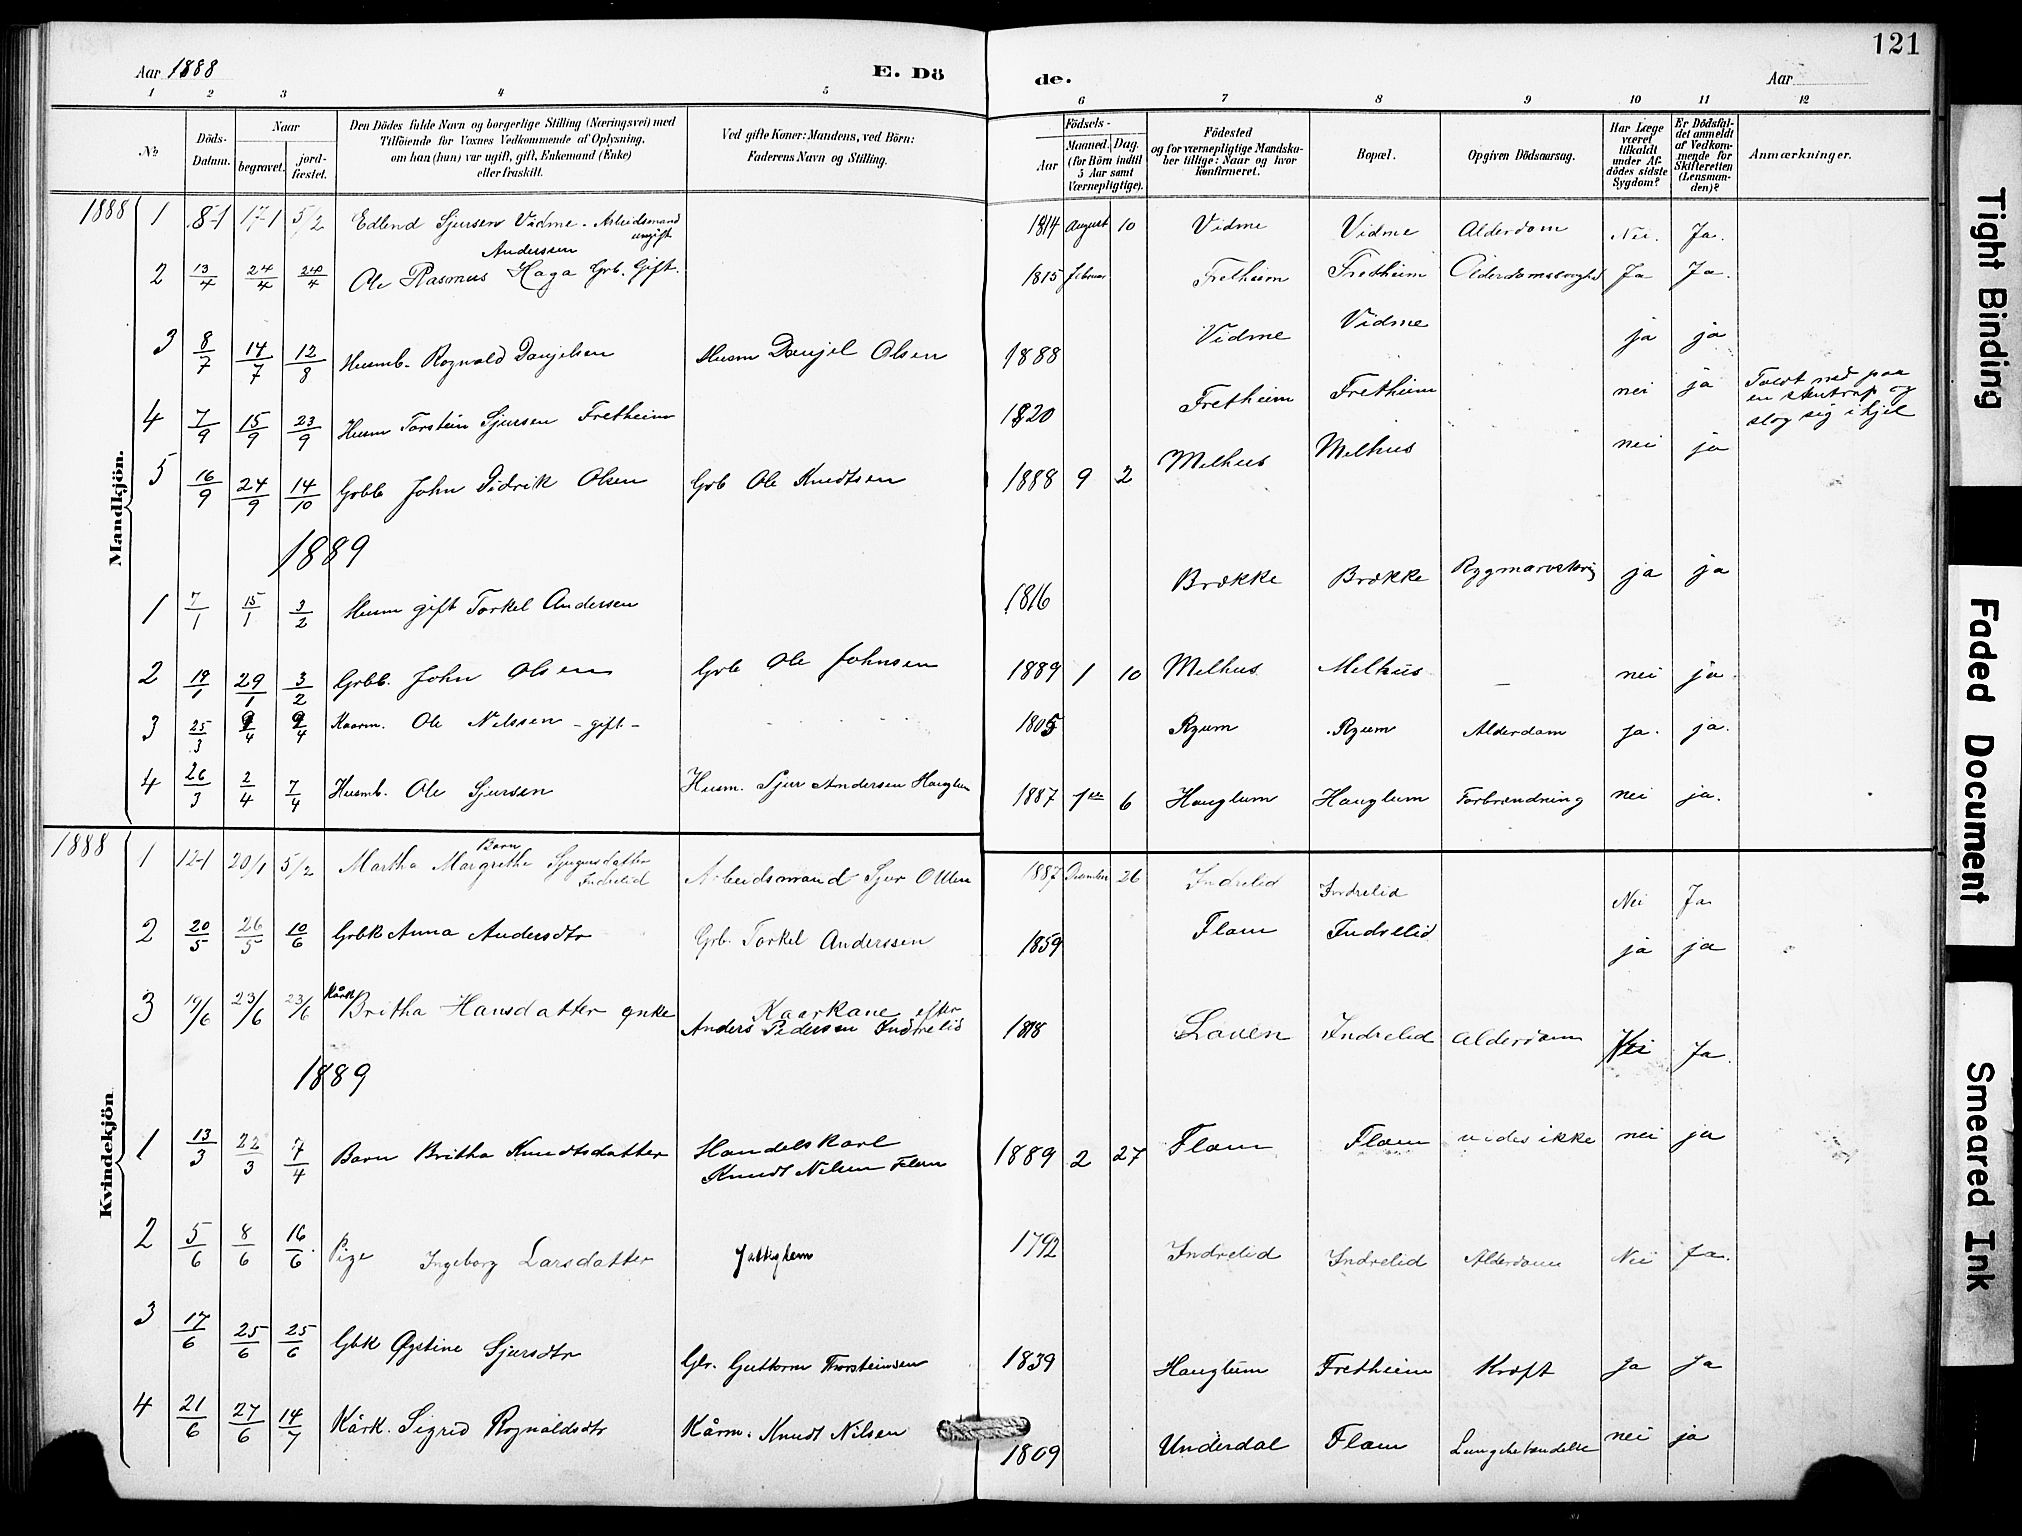 121
Aar 1888
E. Döde.
Aar
1 2 3 4 5 6 7 8 9 10 11 12
No
Döds-Datum.
Naar
begravet.
jord-fæstet.
Den Dödes fulde Navn og borgerlige Stilling (Næringsvei) med
Tilföiende for Voxnes Vedkommende af Oplysning,
om han (hun) var ugift, gift, Enkemand (Enke)
eller fraskilt.
Ved gifte Koner: Mandens, ved Börn:
Faderens Navn og Stilling.
Födsels-
Aar
Maaned. Dag.
(for Börn indtil
5 Aar samt
Værnepligtige).
Födested
og for værnepligtige Mandska-
ber tillige: Naar og hvor
konfirmeret.
Bopæl.
Opgiven Dödsaarsag.
Har Læge
været
tilkaldt
under Af-
dödes sidste
Sygdom?
Er Dödsfal-
det anmeldt
af Vedkom-
mende for
Skifteretten
(Lensman-
den)?
Anmærkninger.
Mandkjön.
1888 1 8-1 17-1 5/2 Edlend Sjursen Vidme. Arbeidsmand ugift 1814 August 10 Vidme Vidme Alderdom Nei. Ja.
Anderssen
2 13/4 24/4 24/4 Ole Rasmus Haga Grb. Gift. 1815 Februar Fretheim Fretheim Ja Ja.
3 8/7 14/7 12/8 Husmb. Rognald Danjelsen Husm Danjel Olsen 1888 Vidme Vidme ja ja
4 7/9 15/9 23/9 Husm Torstein Sjursen Fretheim 1820 Fretheim Fretheim nei ja
ned paa
en og
slog sig ihjel
5 16/9 24/9 14/10 Grbb John Didrik Olsen Grb Ole Knudtsen 1888 9 2 Melhus Melhus nei ja
1889
1 7/1 15/1 3/2 Husm gift Torkel Andersen 1816 Brække Brække ja ja
2 19/1 29/1 3/2 Grbb. John Olsen Grb Ole Johnsen 1889 1 10 Melhus. Melhus — nei ja.
3 25/3 9/4 9/4 Kaarm. Ole Nilssen - gift - 1805 Ryum Ryum Alderdom ja. ja.
4 26/3 2/4 7/4 Husmb. Ole Sjursen Husm. Sjur Andersen Hauglum 1887 6 Hauglum Hauglum Forbrænding nei ja.
Kvindekjön
1888 1 12-1 20/1 5/2 Martha Margrethe Sjugursdatter Arbeidsmand Sjur Olsen 1887 December 26 Indrelid Indrelid Nei Ja
Barn
Indrelid
2 20/5 26/5 10/6 Grbk Anna Andersdtr Grb. Torkel Anderssen 1859 Flam Indrelid ja ja
3 19/6 23/6 23/6 Kårk Britha Hansdatter enke Kaarkane efter
Anders Pedersen Indrelid 1818 Laven Indrelid Alderdom Nei Ja.
1889
1 13/3 22/3 7/4 Barn Britha Knudtsdatter Handelskarl
Knudt Nilsen Flam 1889 2 27 Flam Flam vides ikke nei ja
2 5/6 8/6 16/6. Pige Ingeborg Larsdatter 1792 Indrelid Indrelid Alderdom Nei Ja.
3 17/6 25/6 25/6 Gbk Øystine Sjursdtr Gbr. Guttorm Thorsteinsen 1839 Hauglum Fretheim Kræft ja ja
4 21/6 27/6 14/7 Kårk. Sigrid Rognaldsdtr Kårm. Knudt Nilsen 1809 Underdal Flam Lungebetændelse nei ja
Tight Binding
Faded Document
Smeared Ink